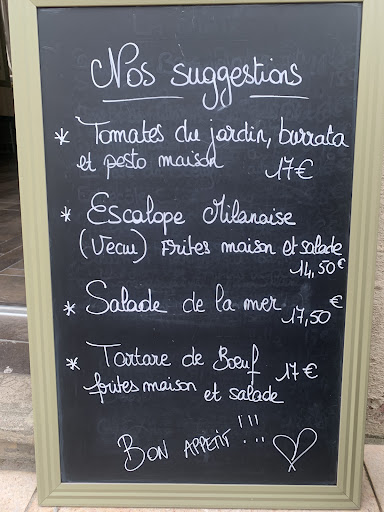 Nos suggestions
* Tomates du jardin, burrata
et pesto maison 17€
* Escalope Milanaise
(Veau) Frites maison et salade
14,50€
* Salade de la mer 17,50€
* Tartare de Bœuf 17€
frites maison et salade
BON APPETIT !!!